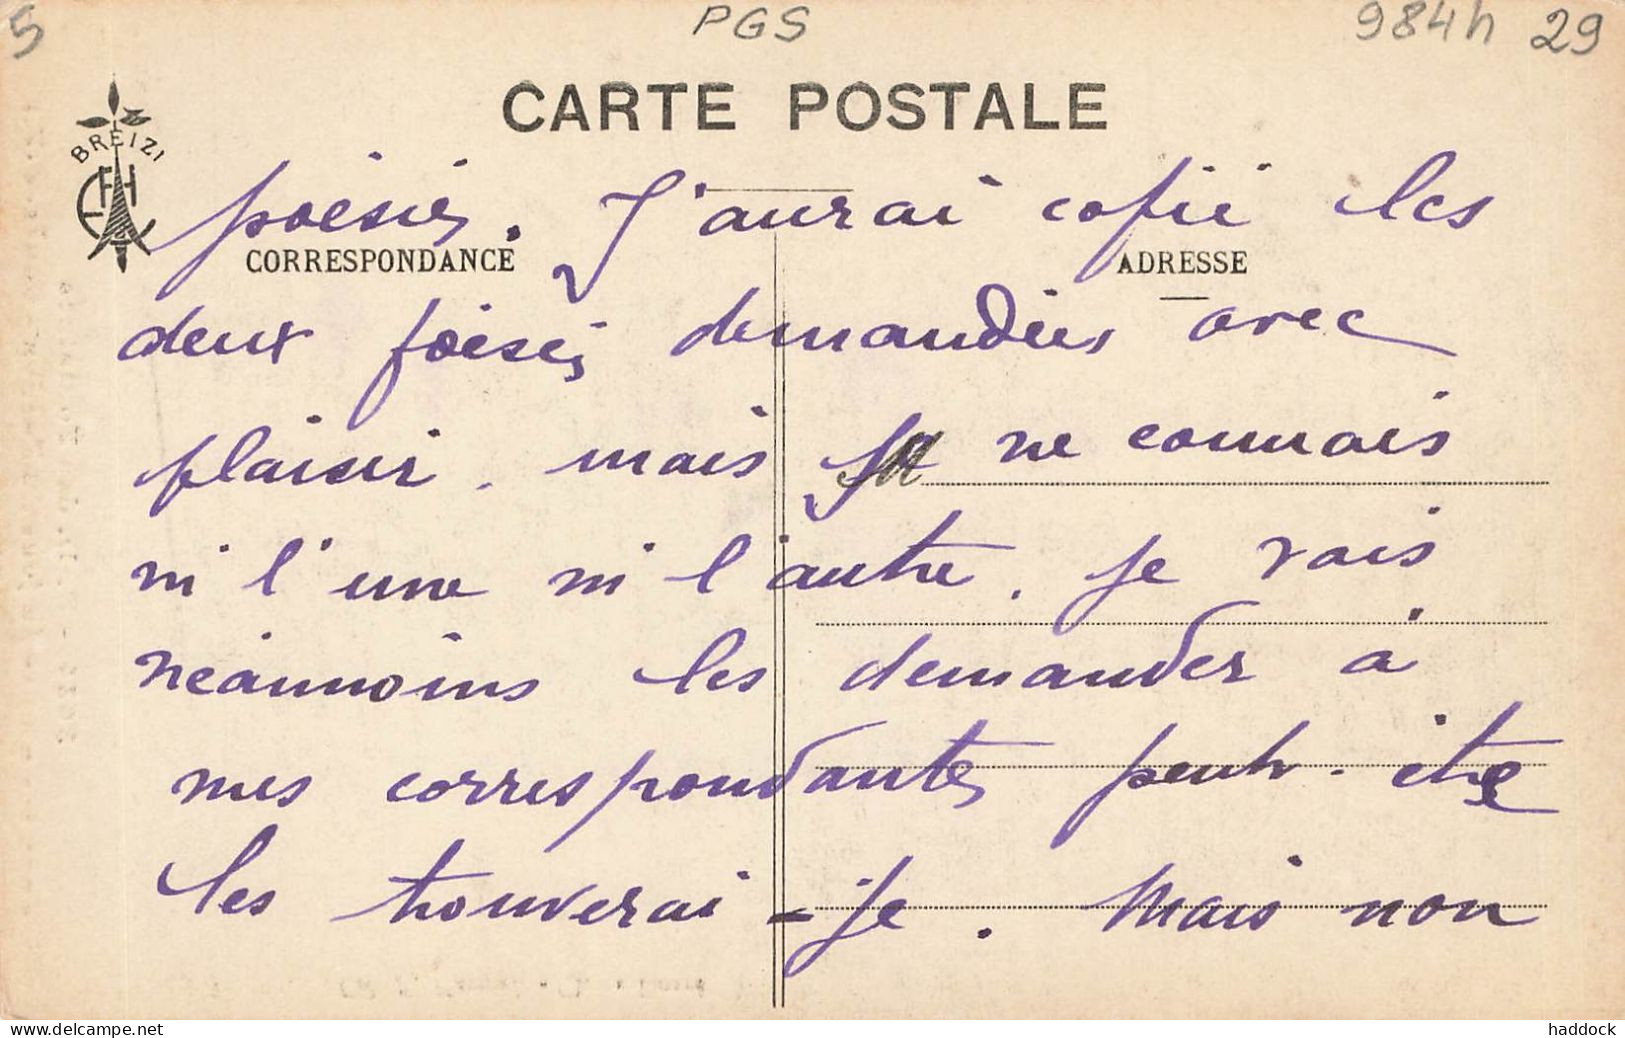 5 PGS 984h 29
CARTE POSTALE
BREIZ
EH
poésies. J'aurai copié les
CORRESPONDANCE ADRESSE
deux poésies demandées avec
plaisir. mais je ne connais
ni l'une ni l'autre. je vais
néanmoins les demander à
mes correspondantes peut-être
les trouverai-je. Mais non
delcampe.net
haddock